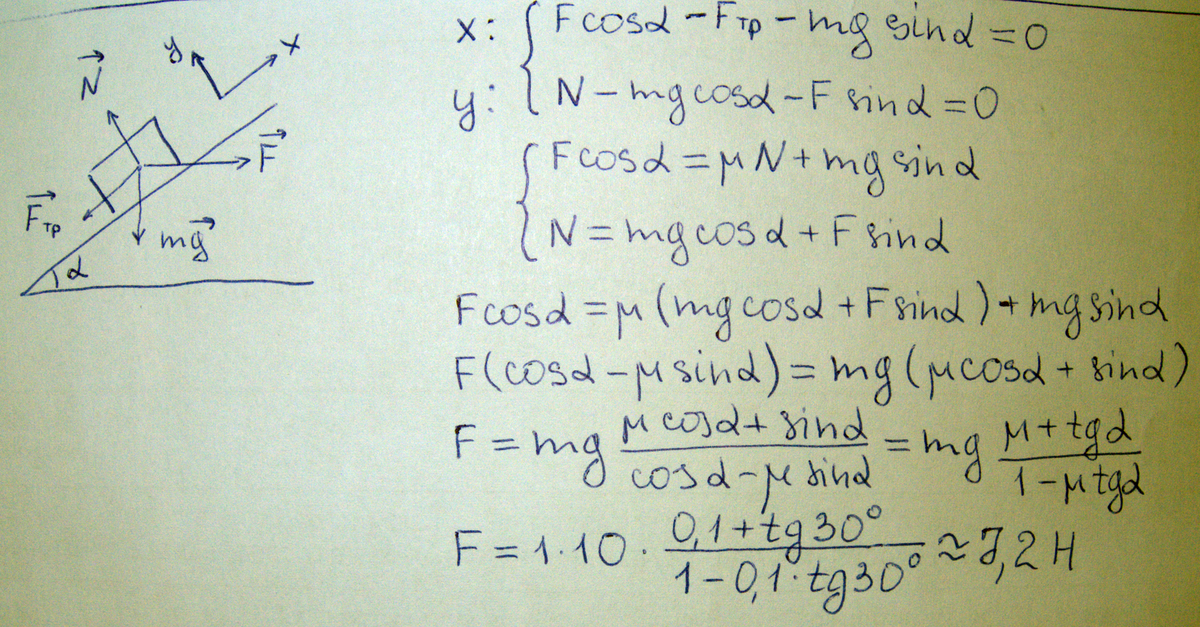 y x
N
F
Fтр
mg
α
x: { F cosα − Fтр − mg sinα = 0
y: { N − mg cosα − F sinα = 0
{ F cosα = μN + mg sinα
{ N = mg cosα + F sinα
F cosα = μ (mg cosα + F sinα) + mg sinα
F(cosα − μ sinα) = mg (μ cosα + sinα)
F = mg (μ cosα + sinα)/(cosα − μ sinα) = mg (μ + tgα)/(1 − μ tgα)
F = 1·10 · (0,1 + tg30°)/(1 − 0,1·tg30°) ≈ 7,2 Н